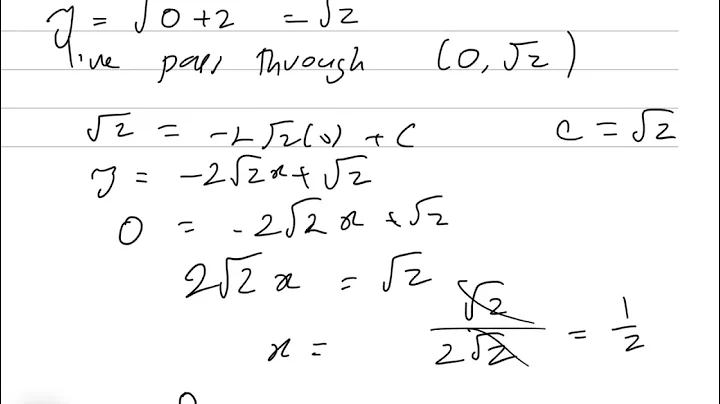 y = √0+2 = √2
line pass through (0, √2)
√2 = -2√2(0) + C C = √2
y = -2√2x + √2
0 = -2√2x + √2
2√2 x = √2
x = √2 / 2√2 = 1/2